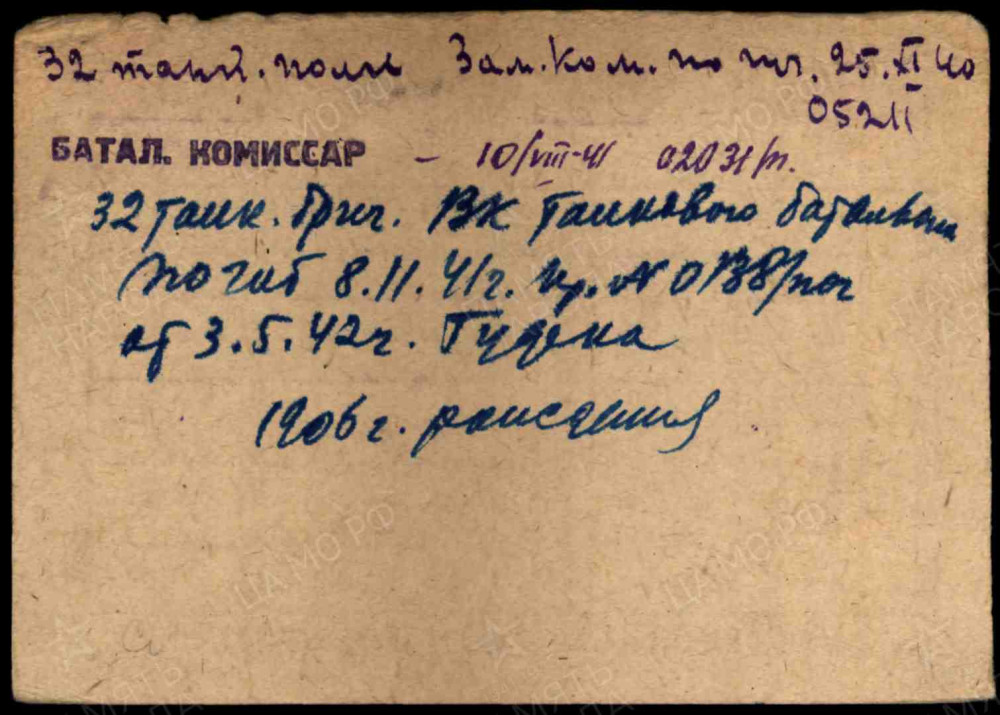 32 танк. полк Зам. Ком. по пч. 25.XI 40
05211
БАТАЛ. КОМИССАР – 10/VIII-41 02031/п.
32 танк. бриг. ВК Танкового батальона
погиб 8.11.41г. пр. № 0138/пог
от 3.5.42г. Гудека
1906 г. рождения
ЦАМО РФ